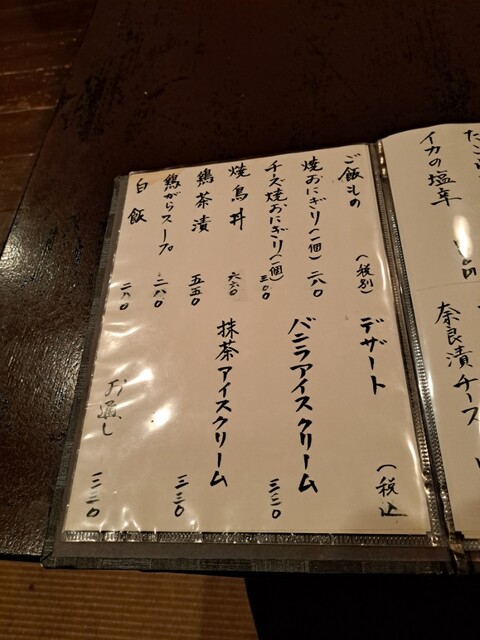 イカの塩辛
奈良漬チーズ
ご飯もの
(税別)
焼おにぎり(一個) 二八〇
チーズ焼おにぎり(一個) 三〇〇
焼鳥丼 六六〇
鶏茶漬 五五〇
鶏がらスープ 二八〇
白飯 二八〇
デザート
(税込
バニラアイスクリーム 三三〇
抹茶アイスクリーム 三三〇
お通し 三三〇